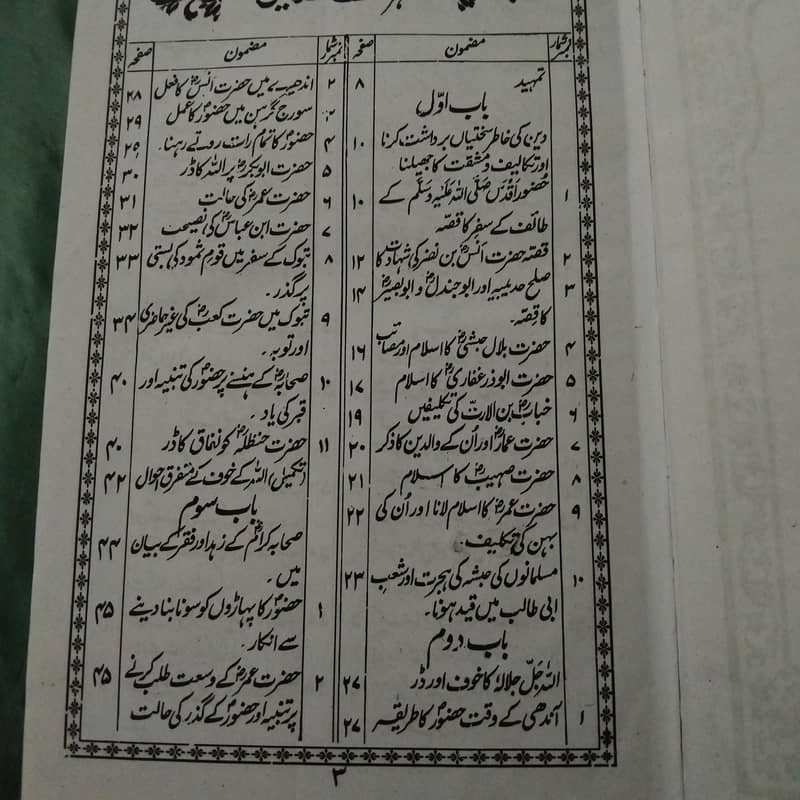 نمبرشمار مضمون صفحہ
تمہید ۸
باب اوّل
دین کی خاطر سختیاں برداشت کرنا ۱۰
اور تکالیف و مشقت کا جھیلنا
۱ حضور اقدس صَلَّی اللہُ عَلَیْہِ وَسَلَّم کے ۱۰
طائف کے سفر کا قصہ
۲ قصہ حضرت انسؓ بن نضر کی شہادت کا ۱۲
۳ صلح حدیبیہ اور ابوجندلؓ و ابوبصیرؓ ۱۴
کا قصہ۔
۴ حضرت بلال حبشیؓ کا اسلام اور مصائب ۱۶
۵ حضرت ابوذر غفاریؓ کا اسلام ۱۷
۶ خبابؓ بن الارتّ کی تکلیفیں ۱۹
۷ حضرت عمارؓ اور اُن کے والدین کا ذکر ۲۰
۸ حضرت صہیبؓ کا اسلام ۲۱
۹ حضرت عمرؓ کا اسلام لانا اور اُن کی ۲۲
بہن کی تکلیف۔
۱۰ مسلمانوں کی حبشہ کی ہجرت اور شعب ۲۳
ابی طالب میں قید ہونا۔
باب دوم
اللہ جَلّ جلالہٗ کا خوف اور ڈر ۲۷
۱ آندھی کے وقت حضورؐ کا طریقہ ۲۷
نمبرشمار مضمون صفحہ
۲ اندھیرے میں حضرت انسؓ کا فعل ۲۸
۳ سورج گرہن میں حضورؐ کا عمل ۲۹
۴ حضورؐ کا تمام رات روتے رہنا۔ ۲۹
۵ حضرت ابوبکرؓ پر اللہ کا ڈر ۳۰
۶ حضرت عمرؓ کی حالت ۳۱
۷ حضرت ابن عباسؓ کی نصیحت ۳۲
۸ تبوک کے سفر میں قوم ثمود کی بستی ۳۳
پر گذر۔
۹ تبوک میں حضرت کعبؓ کی غیر حاضری ۳۴
اور توبہ۔
۱۰ صحابہؓ کے ہنسنے پر حضورؐ کی تنبیہ اور ۴۰
قبر کی یاد۔
۱۱ حضرت حنظلہؓ کو نفاق کا ڈر ۴۰
(تکمیل) اللہ کے خوف کے متفرق احوال ۴۲
باب سوم
صحابہ کرامؓ کے زہد اور فقر کے بیان ۴۴
میں۔
۱ حضورؐ کا پہاڑوں کو سونا بنا دینے ۴۵
سے انکار۔
۲ حضرت عمرؓ کے وسعت طلب کرنے ۴۵
پر تنبیہ اور حضورؐ کے گذر کی حالت
۳